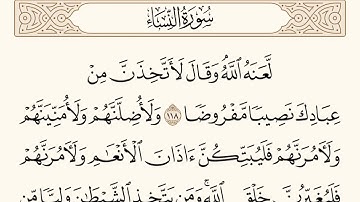 سُورَةُ النِّسَاءِ
لَّعَنَهُ ٱللَّهُ وَقَالَ لَأَتَّخِذَنَّ مِنْ
عِبَادِكَ نَصِيبًا مَّفْرُوضًا ١١٨ وَلَأُضِلَّنَّهُمْ وَلَأُمَنِّيَنَّهُمْ
وَلَءَامُرَنَّهُمْ فَلَيُبَتِّكُنَّ ءَاذَانَ ٱلْأَنْعَٰمِ وَلَءَامُرَنَّهُمْ
فَلَيُغَيِّرُنَّ خَلْقَ ٱللَّهِ ۚ وَمَن يَتَّخِذِ ٱلشَّيْطَٰنَ وَلِيًّا مِّن